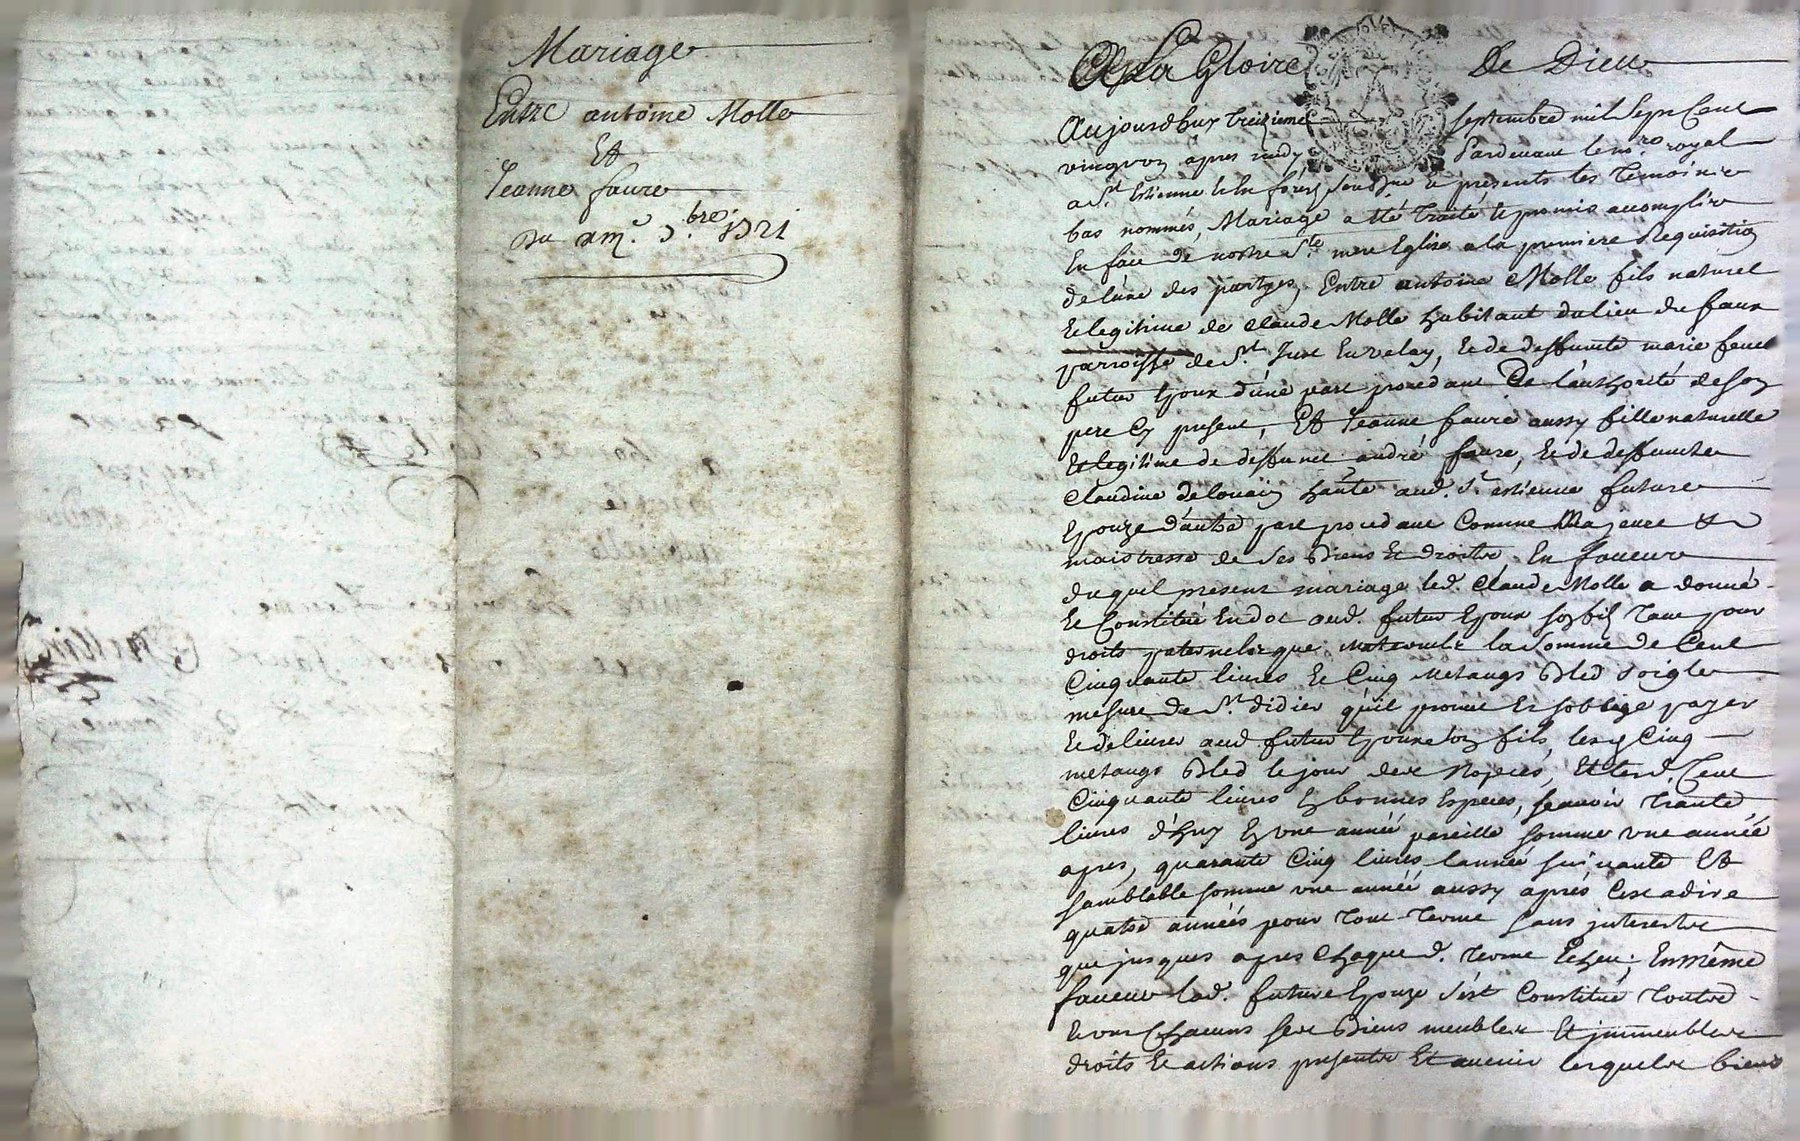 Mariage
Entre antoine Molle
Et
Jeanne faure
Du 7.bre 1721
A La Gloire De Dieu
Aujourdhuy treizieme Septembre mil Sept Cent
vingt un apres midy Pardevant le no.re royal
a S.t Estienne En forez Soubsigné & presents les Temoins
bas nommés, Mariage a êté traité & promis accomplir
En face de nostre S.te mere Eglise a la premiere Requisition
de lune des partyes, Entre antoine Molle fils naturel
& legitime de Claude Molle habitant du lieu de faux
parroisse de S.t Just En velay, & de deffunte marie
futur Epoux d'une part procedant De l'authorité de son
pere Cy present, Et Jeanne faure aussy fille naturelle
Et legitime de deffunct andré faure, & de deffuncte
Claudine habte aud. S.t estienne future
Epouze d'autre part procedant Comme Majeure &
maistresse de Ses Biens Et droits. En faveur
duquel present mariage led. Claude Molle a donné
& Constitué En dot aud. futur Epoux son fils Tant pour
droits paternels que maternels la Somme de Cent
Cinquante livres & Cinq Metangs Bled Soigle
mesure de S.t didier qu'il promet & s'oblige payer
& delivrer aud. futur Epoux son fils, lesd. Cinq
metangs Bled le jour des Nopces, Et lesd. Cent
Cinquante livres En bonnes Especes, Scavoir Trante
livres d'huy En une année pareille Somme une année
apres, quarante Cinq livres l'année suivante Et
Semblable Somme une année aussy aprés C'est a dire
quatre années pour Tout Terme Sans interests
que jusques apres Chaque d. Terme Echeu; En même
faveur lad. future Epouze S'est Constitué Touts
& uns Chacuns Ses Biens meubles Et immeubles
droits & actions presents Et avenir lesquels biens